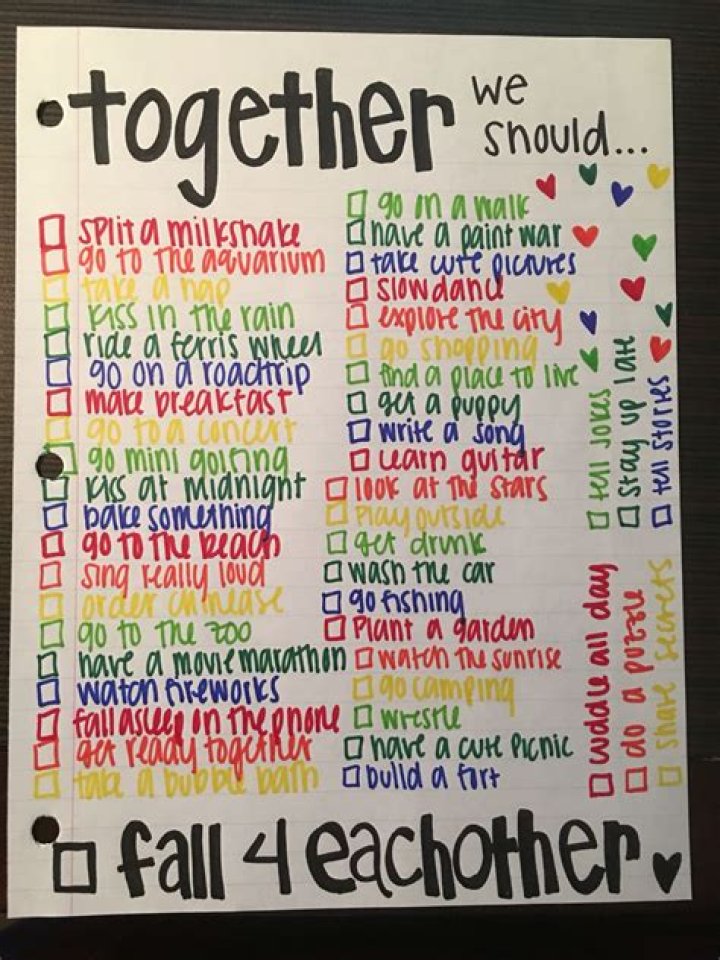 together we should...
split a milkshake
go to the aquarium
take a nap
kiss in the rain
ride a ferris wheel
go on a roadtrip
make breakfast
go to a concert
go mini golfing
kiss at midnight
bake something
go to the beach
sing really loud
order chinease
go to the zoo
have a movie marathon
watch fireworks
fall asleep on the phone
get ready together
take a bubble bath
go on a walk
have a paint war
take cute pictures
slow dance
explore the city
go shopping
find a place to live
get a puppy
write a song
learn guitar
look at the stars
play outside
get drunk
wash the car
go fishing
plant a garden
watch the sunrise
go camping
wrestle
have a cute picnic
build a fort
tell jokes
stay up late
tell stories
cuddle all day
do a puzzle
share secrets
fall 4 eachother